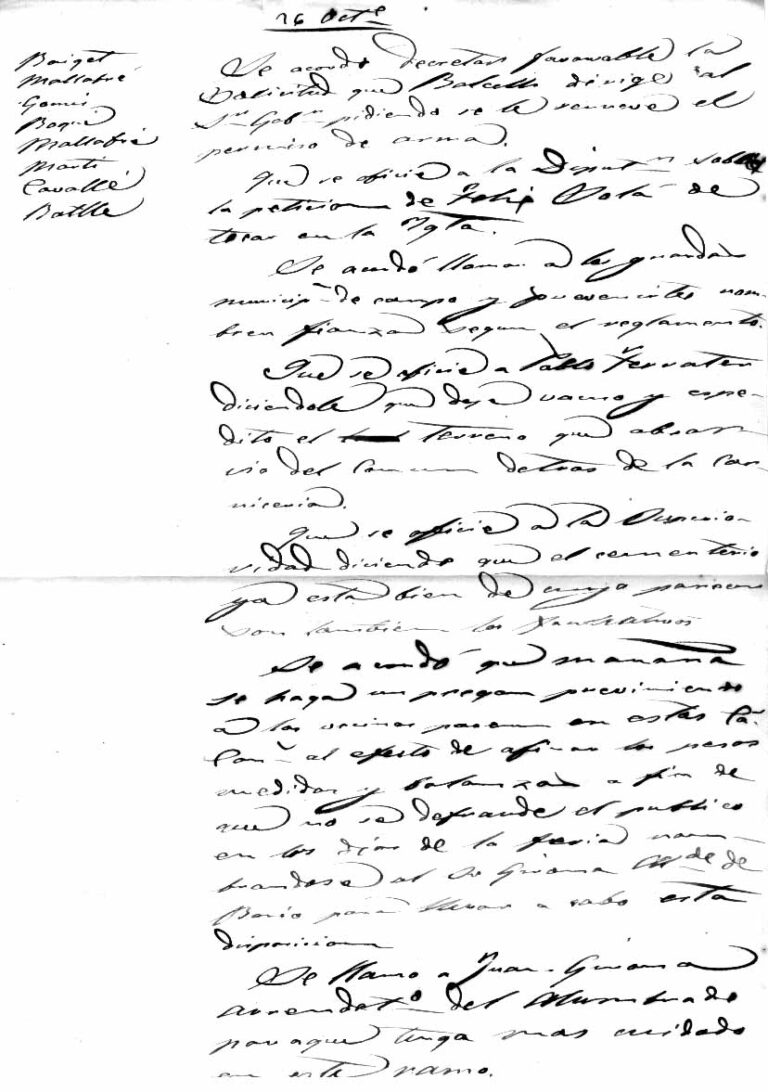 16 Oct.e
Baiget
Mallafré
Gomis
Boqué
Mallafré
Marti
Cavallé
Batlle
Se acordo decretar favorable la
Solicitud que Balcells dirige al
S.r Gob.r pidiendo se le renueve el
permiso de arma.
Que se oficie a la Diput.n sobre
la peticion de Felix Solá de
tocar en la Ygla.
Se acordó llamar a los guardas
municip.s de campo y prevenirles nom-
bren fianzas segun el reglamento.
Que se oficie a Pablo Ferrater
diciendole que deje vacuo y espe-
dito el terreno que absor-
vio del Comun detras de la car-
niceria.
Que se oficie a la Superio-
ridad diciendo que el cementerio
ya esta bien de cuyo parecer
son tambien los facultativos
Se acordó que mañana
se haga un pregon previniendo
a los vecinos pasen en estas Ca.s
Con.s al efecto de afinar los pesos
medidas y balanzas a fin de
que no se defraude el publico
en los dias de la feria nom-
brandose al Sr Girona Al.de de
Bario para llevar a cabo esta
disposicion
Se llamo a Juan Girona
arrendat.o del Alumbrado
para que tenga mas cuidado
en este ramo.